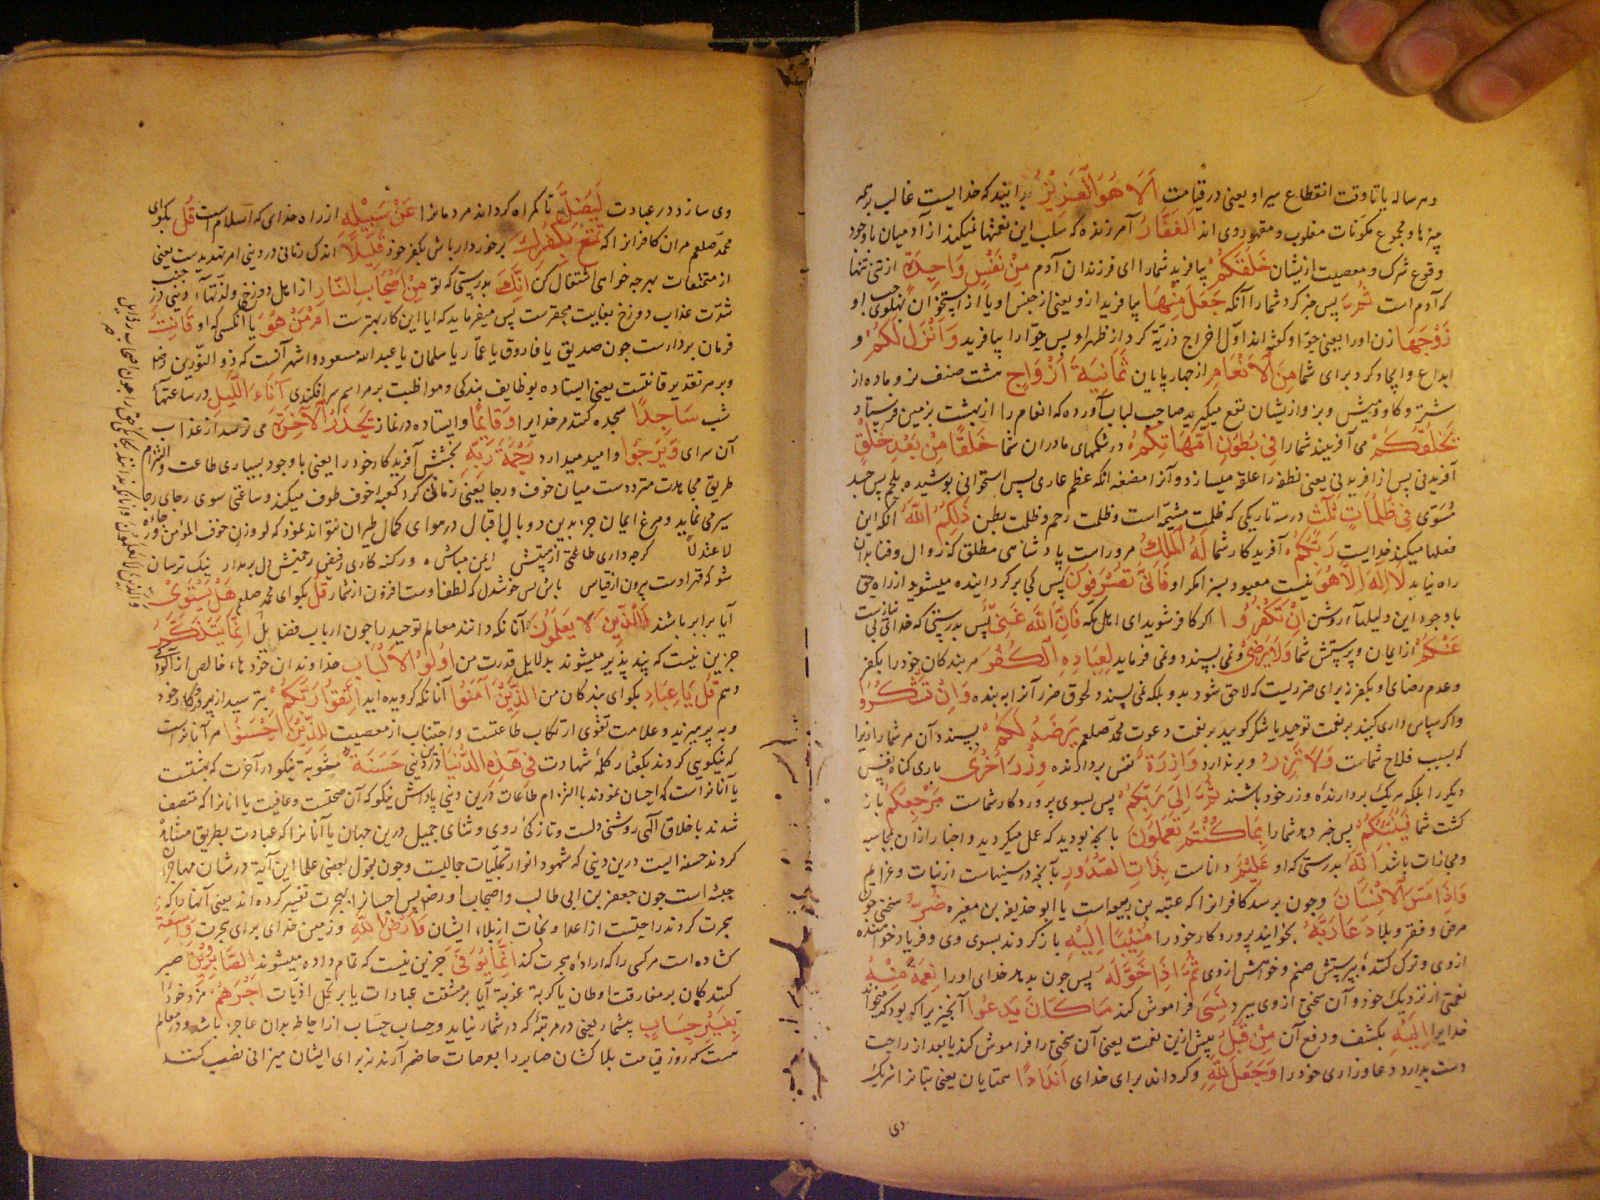 ده ساله یا تا وقت انقطاع سیر او یعنی در قیامت اَلَا هُوَ الْعَزِیْزُ بدانید که خدایست غالب بر همه
چیزها و مجموع مکونات مغلوب و مقهور وی اند الْغَفَّارُ آمرزنده که سلب این نعمتها نمیکند از آدمیان با وجود
وقوع شرک و معصیت از یشان خَلَقَکُمْ بیافرید شما را ای فرزندان آدم مِنْ نَفْسٍ وَاحِدَةٍ از تنی تنها
که آدم است ثُمَّ پس خبر کرد شما را آنکه جَعَلَ مِنْهَا بیافرید ازو یعنی از جنس او یا از استخوان پهلوی چپ او
زَوْجَهَا زن او را یعنی حوّا و گویند اوّل اخراج ذریّه کرد از ظهر او پس حوّا را بیافرید وَاَنْزَلَ لَکُمْ و
ابداع و ایجاد کرد برای شما مِنَ الْاَنْعَامِ از چهار پایان ثَمَانِیَةَ اَزْوَاجٍ هشت صنف نر و ماده از
شتر و گاو و میش و بز و از یشان نفع میگیرید صاحب لباب آورده که انعام را از بهشت بزمین فرستاد
یَخْلُقُکُمْ می آفریند شما را فِیْ بُطُوْنِ اُمَّهَاتِکُمْ در شکمهای مادران شما خَلْقًا مِنْ بَعْدِ خَلْقٍ
آفریدنی پس از آفریدنی یعنی نطفه را علقه میسازد و آنرا مضغه آنکه عظم عاری پس استخوانی پوشیده بلحم پس جسد
مُسَوّی فِیْ ظُلُمَاتٍ ثَلٰثٍ در سه تاریکی که ظلمت مشیمه است و ظلمت رحم و ظلمت بطن ذٰلِکُمُ اللّٰهُ آنکه این
فعلها میکند خدایست رَبُّکُمْ آفریدکار شما لَهُ الْمُلْکُ مر او راست پادشاهی مطلق که زوال و فنا بدان
راه نیابد لَا اِلٰهَ اِلَّا هُوَ نیست معبود بسزا مگر او فَاَنّٰی تُصْرَفُوْنَ پس کی بر گردانیده میشوید از راه حق
با وجود این دلیلهاء روشن اِنْ تَکْفُرُوْا اگر کافر شوید ای اهل مکّه فَاِنَّ اللّٰهَ غَنِیٌّ پس بدرستی که خدای بی نیازست
عَنْکُمْ از ایمان و پرستش شما وَلَا یَرْضٰی و نمی پسندد و نمی فرماید لِعِبَادِهِ الْکُفْرَ مر بندگان خود را بکفر
و عدم رضای او بکفر نه برای ضرریست که لاحق شود بدو بلکه نمی پسندد لحوق ضرر آنرا به بنده وَاِنْ تَشْکُرُوْا
و اگر سپاس داری کنید بر نعمت توحید یا شکر گویید بر نعمت دعوت محمّد صلعم یَرْضَهُ لَکُمْ پسندد آن مر شما را زیرا
که سبب فلاح شماست وَلَا تَزِرُ و بر ندارد وَازِرَةٌ نفس بردارنده وِزْرَ اُخْرٰی باری گناه نفس
دیگر را بلکه هر یک بردارندهٔ وزر خود باشند ثُمَّ اِلٰی رَبِّکُمْ پس بسوی پروردگار شماست مَرْجِعُکُمْ باز
گشت شما فَیُنَبِّئُکُمْ پس خبر دهد شما را بِمَا کُنْتُمْ تَعْمَلُوْنَ بآنچه بودید که عمل میکردید و اخبار از آن بمحاسبه
و مجازات باشد اِنَّهُ بدرستی که او عَلِیْمٌ داناست بِذَاتِ الصُّدُوْرِ بآنچه در سینهاست از نیّات و عزایم
وَاِذَا مَسَّ الْاِنْسَانَ و چون برسد کافر انرا که عتبه بن ربیعه است یا ابو حذیفه بن مغیره ضُرٌّ سختی چون
مرض و فقر و بلا دَعَا رَبَّهُ بخواند پروردگار خود را مُنِیْبًا اِلَیْهِ باز گردنده بسوی وی و فریاد خواهنده
ازوی و ترک کننده پرستش صنم و خواهش ازوی ثُمَّ اِذَا خَوَّلَهُ پس چون بدهد خدای او را نِعْمَةً مِنْهُ
نعمتی از نزدیک خود و آن سختی ازوی ببرد نَسِیَ فراموش کند مَا کَانَ یَدْعُوْا آنچیز را که بود که میخواند
خدایرا اِلَیْهِ بکشف و دفع آن مِنْ قَبْلُ پیش ازین نعمت یعنی آن سختی را فراموش کند یا بعد از راحت
دست بدارد دعا و زاری خود را وَجَعَلَ لِلّٰهِ و گرداند برای خدای اَنْدَادًا همتایان یعنی بتانرا شریک
وی
وی سازد در عبادت لِیُضِلَّ تا گمراه گرداند مردمانرا عَنْ سَبِیْلِهِ از راه خدای که اسلام است قُلْ بگوی
محمّد صلعم مر ان کافرانرا که تَمَتَّعْ بِکُفْرِکَ برخوردار باش بکفر خود قَلِیْلًا اندک زمانی در دنیی امر تهدیدست یعنی
از متمتعات بهرچه خواهی اشتغال کن اِنَّکَ بدرستی که تو مِنْ اَصْحَابِ النَّارِ از اهل دوزخی و لذّتهاء دنیی در جنب
شدّت عذاب دوزخ بغایت محقرست پس میفرماید که ایا این کار بهترست اَمَّنْ هُوَ یا انکسی که او قَانِتٌ
فرمان بردارست چون صدیق یا فاروق یا عمّار یا سلمان یا عبد الله مسعود و اشهر آنست که ذو النّورین رض
و بر هر تقدیر قانتست یعنی ایستاده بوظایف بندگی و مواظبت بر مراسم سرافکندی اٰنَاءَ اللَّیْلِ در ساعتهاء
شب سَاجِدًا سجده کننده مر خدایرا وَقَائِمًا و ایستاده در نماز یَحْذَرُ الْاٰخِرَةَ می ترسد از عذاب
آن سرای وَیَرْجُوْا و امید میدارد رَحْمَةَ رَبِّهِ بخشش آفریدکار خود را یعنی با وجود بسیاری طاعت و التزام
طریق مجاهدت متردد ست میان خوف و رجا یعنی زمانی گرد کعبهٔ خوف طوف میکند و ساعتی سوی رجای رجا
سیر می نماید و مرغ ایمان جز بدین دو بال اقبال در هوای کمال طیران نتواند نمود که لو وزن خوف المؤمن و رجاءه
لاعتدلا گرچه داری طاعتی از پیش ایمن مباش ور گنه کاری ز فیض رحمتش دل بر مدار نیک ترسان
شو که قهر اوست بیرون از قیاس باش بس خوشدل که لطف اوست افزون از شمار قُلْ بگوی محمّد صلعم هَلْ یَسْتَوِیْ
آیا برابر باشند الَّذِیْنَ لَا یَعْلَمُوْنَ آنانکه دانند معالم توحید را چون ارباب فضایل اِنَّمَا یَتَذَکَّرُ
جزین نیست که پند پذیر میشوند بدلایل قدرت من اُولُوا الْاَلْبَابِ خداوندان خردهاء خالص از آلودگی
وهم قُلْ یَا عِبَادِ بگو ای بندگان من الَّذِیْنَ اٰمَنُوْا آنانکه گرویده اید اتَّقُوْا رَبَّکُمْ بترسید از پروردگار خود
و به پرهیزید و علامت تقوی ارتکاب طاعتست و اجتناب از معصیت لِلَّذِیْنَ اَحْسَنُوْا مر آنانراست
که نیکویی کردند بگفتار کلمهٔ شهادت فِیْ هٰذِهِ الدُّنْیَا درین دنیی حَسَنَةٌ مثوبهٔ نیکو در آخرت که بهشتست
یا آنانراست که احسان نمودند بالتزام طاعات درین دنیی پاداش نیکو که آن صحتست و عافیت یا انانرا که متصف
شدند باخلاق الهی روشنی دلست و تازگی روی و ثنای جمیل درین جهان یا آنانرا که عبادت بطریق مشاهده
کردند حسنه ایست درین دنیی که شهود انوار تجلّیات جمالیست و چون بقول بعضی علما این آیة در شان مهاجران
حبشه است چون جعفر بن ابی طالب و اصحاب او رض پس احسانرا بهجرت تفسیر کرده اند یعنی آنها را که
هجرت کردند راحتست از اعدا و نجات از بلاء ایشان وَاَرْضُ اللّٰهِ و زمین خدای برای هجرت وَاسِعَةٌ
گشاده است هر کسی را که اراده هجرت کند اِنَّمَا یُوَفَّی جزین نیست که تمام داده میشوند الصَّابِرُوْنَ صبر
کنندگان بر مفارقت اوطان یا کربهٔ غربة آیا بر مشقت عبادات یا بر تحمل اذیّات اَجْرَهُمْ مزد خود را
بِغَیْرِ حِسَابٍ بیشمار یعنی در مرتبهٔ که در شمار نیاید و حساب حسّاب از احاطه بدان عاجز باشد و در معالم
هست که روز قیامت بلا کشان صابر را بعرصات حاضر آرند نه برای ایشان میزانی نصب کنند
وَالَّذِیْنَ لَا یَعْلَمُوْنَ